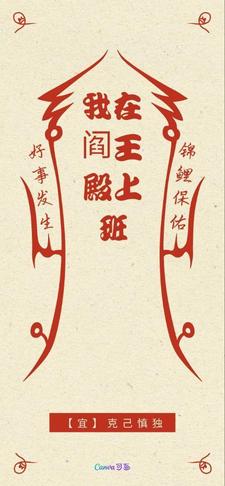 我在
阎王
殿上
班
锦鲤保佑
好事发生
【宜】克己慎独
Canva可画